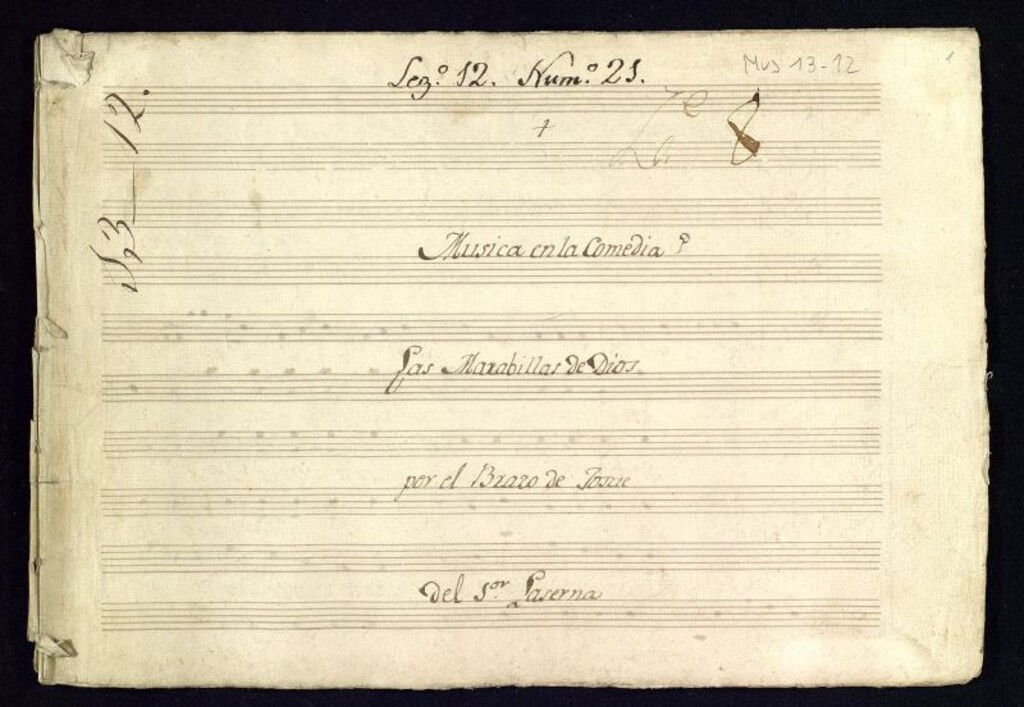 Leg.º 12. Num.º 21.
Mus 13-12
1
8
13—12.
Musica en la Comedia
Las Marabillas de Dios
por el Brazo de Josue
del S.or Laserna